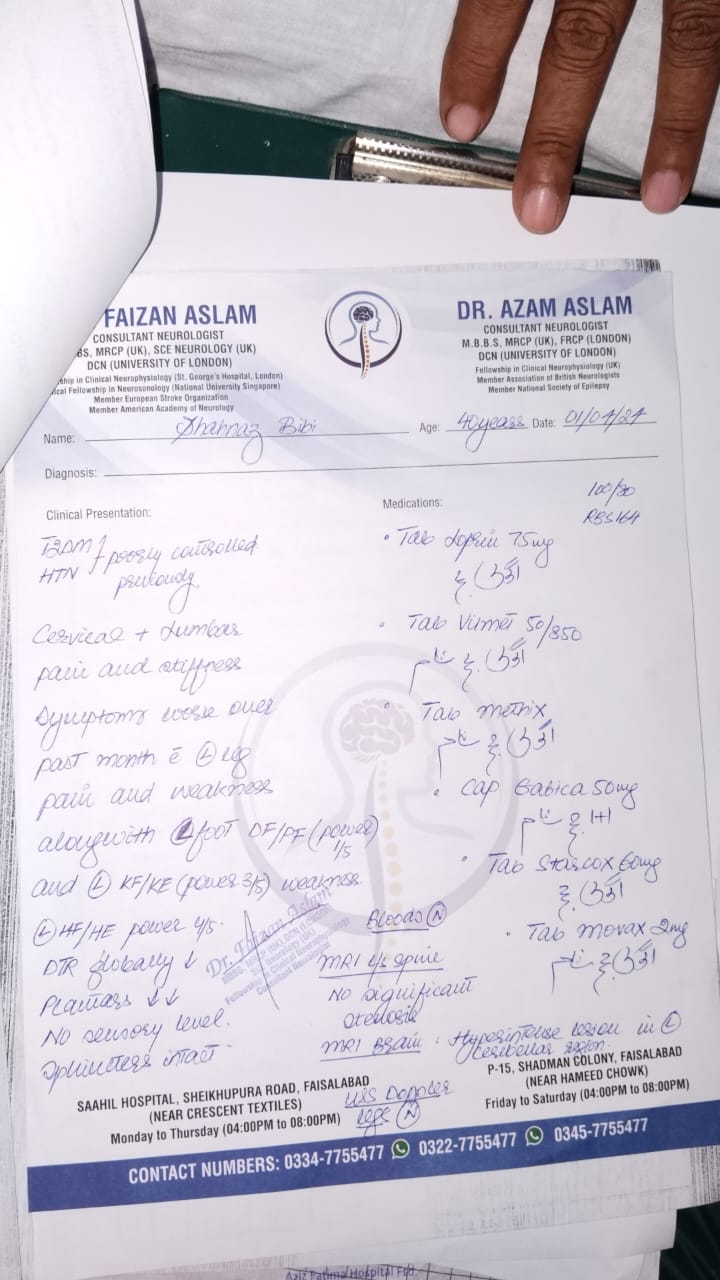 FAIZAN ASLAM
CONSULTANT NEUROLOGIST
BS, MRCP (UK), SCE NEUROLOGY (UK)
DCN (UNIVERSITY OF LONDON)
ship in Clinical Neurophysiology (St. George's Hospital, London)
ical Fellowship in Neurosonology (National University Singapore)
Member European Stroke Organization
Member American Academy of Neurology
DR. AZAM ASLAM
CONSULTANT NEUROLOGIST
M.B.B.S, MRCP (UK), FRCP (LONDON)
DCN (UNIVERSITY OF LONDON)
Fellowship in Clinical Neurophysiology (UK)
Member Association of British Neurologists
Member National Society of Epilepsy
Name: Shahnaz Bibi Age: 40years Date: 01/04/24
Diagnosis:
Clinical Presentation:
T2DM
HTN } poorly controlled
previously.
Cervical + Lumbar
pain and stiffness
Symptoms worse over
past month c̄ Ⓛ leg
pain and weakness
alongwith Ⓛ foot DF/PF (power 1/5)
and Ⓛ KF/KE (power 3/5) weakness.
Ⓛ HF/HE power 4/5.
DTR globally ↓
Plantars ↓↓
No sensory level.
Sphincters intact.
Medications:
100/80
RBS 164
• Tab Loprin 75mg
• Tab Vilmet 50/850
• Tab
• Cap Gabica 50mg
1+1
• Tab Starcox 60mg
• Tab Movax 2mg
Bloods Ⓝ
MRI L/S spine
No significant
stenosis
MRI Brain: Hyperintense lesion in Ⓛ
cerebellar region.
USS Doppler
legs Ⓝ
Dr. Faizan Aslam
Consultant Neurologist
SAAHIL HOSPITAL, SHEIKHUPURA ROAD, FAISALABAD
(NEAR CRESCENT TEXTILES)
Monday to Thursday (04:00PM to 08:00PM)
P-15, SHADMAN COLONY, FAISALABAD
(NEAR HAMEED CHOWK)
Friday to Saturday (04:00PM to 08:00PM)
CONTACT NUMBERS: 0334-7755477 0322-7755477 0345-7755477
Aziz Fatima Hospital Fsd.